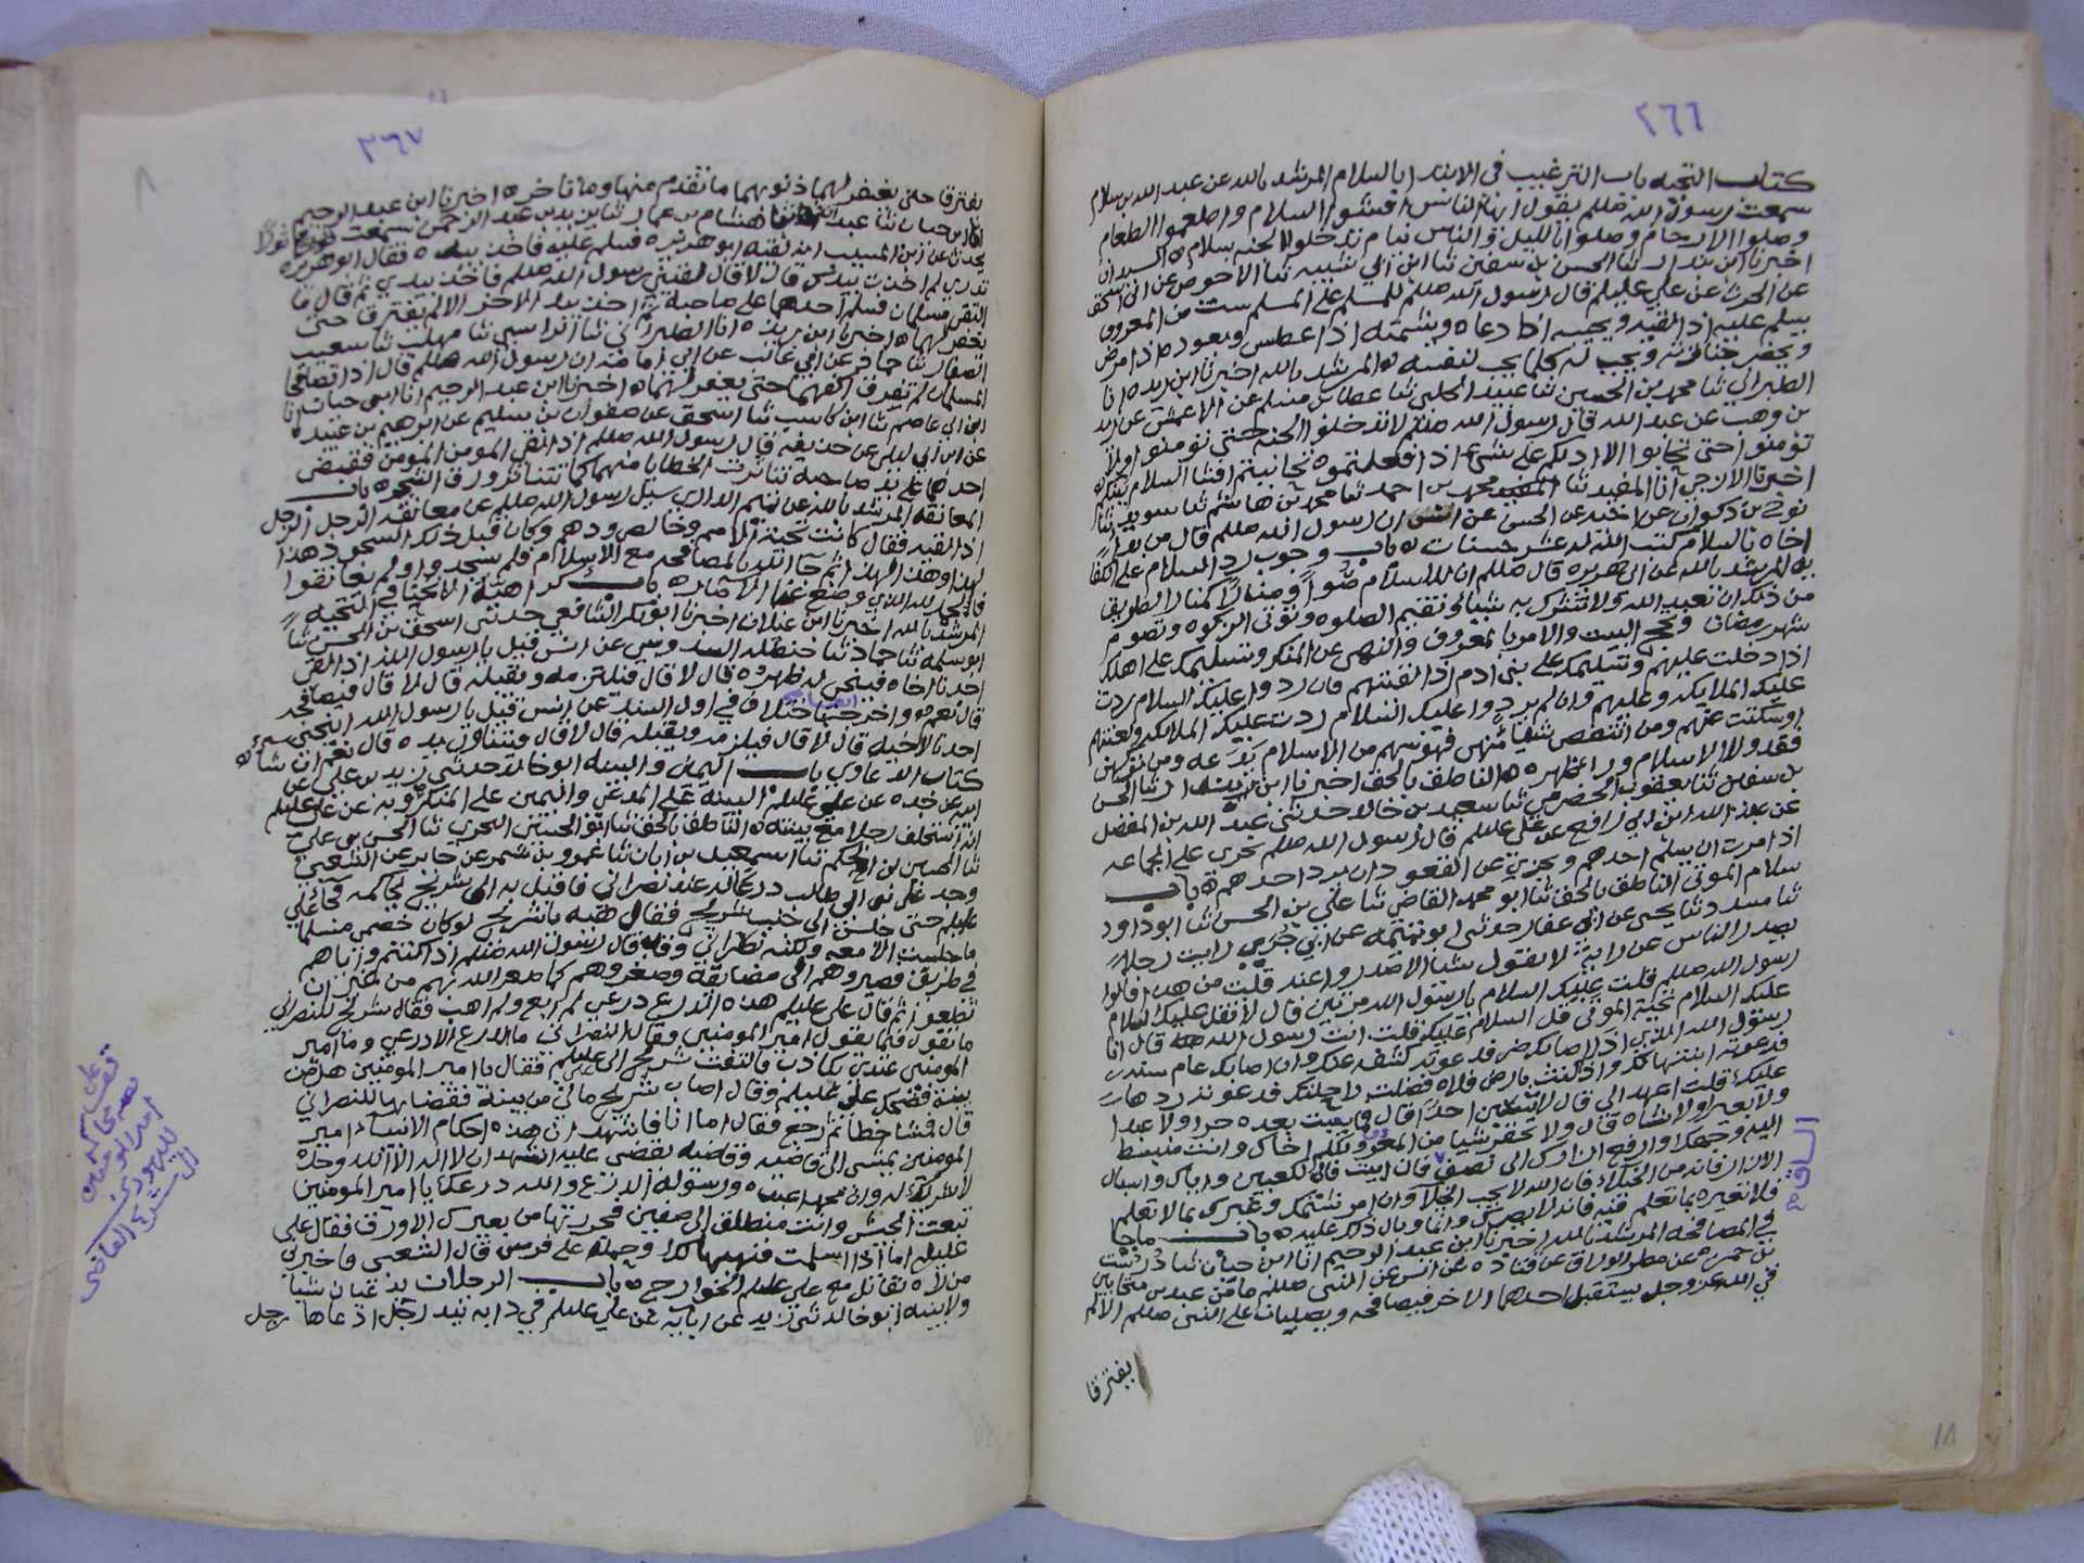 ٢٦٦
كتاب التحيه باب الترغيب في الابتدا بالسلام المرشد بالله عن عبد الله بن سلام
سمعت رسول الله صللم يقول ايها الناس افشوا السلام واطعموا الطعام
وصلوا الارحام وصلوا بالليل والناس نيام تدخلوا الجنه بسلام
اخبرنا ابن بندار ثنا الحسن بن سفين ثنا ابن ابي شيبه ثنا الاحوص عن ابي اسحق
عن الحرث عن علي عليلم قال رسول الله صللم للمسلم على المسلم ست من المعروف
يسلم عليه اذا لقيه ويجيبه اذا دعاه ويشمته اذا عطس ويعوده اذا مرض
ويحضر جنازته ويحب له كلما يحب لنفسه المرشد بالله اخبرنا ابن ريده انا
الطبراني ثنا محمد بن الحسين ثنا عبيد الحلبي ثنا عطا بن مسلم عن الاعمش عن زيد
بن وهب عن عبد الله قال رسول الله صللم لا تدخلوا الجنه حتى تؤمنوا ولا
تؤمنوا حتى تحابوا الا ادلكم على شي اذا فعلتموه تحاببتم افشا السلام بينكم
اخبرنا الازجي انا المفيد ثنا محمد بن احمد ثنا محمد بن هاشم ثنا سويد ثنا
نوح بن ذكوان عن اخيه عن الحسن عن انس ان رسول الله صللم قال من بدا
اخاه بالسلام كتب الله له عشر حسنات باب وجوب رد السلام على الكفا
يه المرشد بالله عن ابي هريره قال صللم ان للاسلام ضوا ومنارا كمنار الطريق
من ذلك ان تعبد الله ولا تشرك به شيا وتقيم الصلوه وتؤتي الزكوه وتصوم
شهر رمضان وتحج البيت والامر بالمعروف والنهي عن المنكر وتسليمك على اهلك
اذا دخلت عليهم وتسليمك على بني ادم اذا لقيتهم فان ردوا عليك السلام ردت
عليك الملايكه وعليهم وان لم يردوا عليك السلام ردت عليك الملايكه ولعنتهم
اوسكتت عنهم ومن انتقص شيا منهن فهو سهم من الاسلام يدعه ومن تركهن
فقد ولا الاسلام ورا ظهره الناطق بالحق اخبرنا ابن انا الحسن
بن سفين ثنا يعقوب الحضرمي ثنا سعيد بن خالد حدثني عبد الله بن المفضل
عن عبيد الله ابن ابي رافع عن علي عليلم قال رسول الله صللم يجزي على الجماعه
اذا مرت ان يسلم احدهم ويجزي عن القعود ان يرد احدهم باب
سلام الموتى الناطق بالحق ثنا ابو محمد القاضي ثنا علي بن الحسن ثنا ابو داود
ثنا مسدد ثنا يحيى عن ابي غفار حدثني ابو تميمه عن ابي جري رايت رجلا
يصدر الناس عن رايه لا يقول شيا الا صدروا عنه قلت من هذا قالوا
رسول الله صللم قلت عليك السلام يا رسول الله مرتين قال لا تقل عليك السلام
عليك السلام تحية الموتى قل السلام عليك قلت انت رسول الله قال انا
رسول الله الذي اذا اصابك ضر فدعوته كشفه عنك وان اصابك عام سنه
فدعوته انبتها لك واذا كنت بارض فلاه فضلت راحلتك فدعوته ردها
عليك قلت اعهد الي قال لا تسبن احدا قال فما سببت بعده حرا ولا عبدا
ولا بعيرا ولا شاه قال ولا تحقرن شيا من المعروف وان تكلم اخاك وانت منبسط
اليه وجهك وارفع ازارك الى نصف الساق فان ابيت فالى الكعبين واياك واسبال
الازار فانه من الخيلا فان الله لا يحب الخيلا وان امرؤ شتمك وعيرك بما لا تعلم
فلا تعيره بما تعلم فيه فانه لا يضرك وانما وبال ذلك عليه باب ما جا
في المصافحه المرشد بالله اخبرنا ابن عبد الرحيم انا ابن حيان ثنا درست
بن حمزه عن مطر الوراق عن قتاده عن انس عن النبي صللم ما من عبدين متحابين
في الله عز وجل يستقبل احدهما الاخر فيصافحه ويصليان على النبي صللم الا لم
يفترقا
١٨
٢٦٧
يفترقا حتى يغفر لهما ذنوبهما ما تقدم منها وما تاخر اخبرنا ابن عبد الرحيم
انا ابن حيان ثنا عبد هشام بن عمار ثنا يزيد بن عبد الرحمن سمعت
يحدث عن ابن المسيب انه لقيه ابو هريره فسلم عليه فاخذ بيده فقال ابو هريره
تدري لم اخذت بيدك قال لا قال لقيني رسول الله صللم فاخذ بيدي ثم قال ما
التقى مسلمان فسلم احدهما على صاحبه ثم اخذ بيد الاخر الا لم يفترقا حتى
يغفر لهما اخبرنا ابن ريذه انا الطبراني ثنا مهلب ثنا شعيب
الصفار ثنا عن ابي غالب عن ابي امامه ان رسول الله صللم قال اذا تصافحا
المسلمان لم تفرق اكفهما حتى يغفر لهما اخبرنا ابن عبد الرحيم انا ابن حيان انا
ابن ابي عاصم ثنا ابن كاسب ثنا اسحق عن صفوان بن سليم عن ابرهيم بن عبيد
عن ابن ابي ليلى عن حذيفه قال رسول الله صللم اذا لقي المومن المومن فقبض
احدهما على يد صاحبه تناثرت الخطايا منهما كما تتناثر ورق الشجر باب
المعانقه المرشد بالله عن تميم الداري سيل رسول الله صللم عن معانقه الرجل الرجل
اذا لقيه فقال كانت تحية الامم وخالص ودهم وكان قبل ذلك السجود هذا
لهذا وهذا لهذا ثم جا الله بالمصافحه مع الاسلام فلم يسجدوا ولم يعانقوا
فالحمد لله الذي وضع عنا الاصار باب كراهة الانحنا في التحيه
المرشد بالله اخبرنا ابن غيلان اخبرنا ابو بكر الشافعي حدثني اسحق بن الحسن ثنا
ابو سلمه ثنا حماد ثنا حنظله السدوسي عن انس قيل يا رسول الله اذا لقي
احدنا اخاه فينحني له ظهره قال لا قال فيلتزمه ويقبله قال لا قال فيصافحه
قال نعم واخرجها باختلاف في اول السند عن انس قيل يا رسول الله اينحني
احدنا لاخيه قال لا قال فيلزمه ويقبله قال لا قال فيتناول يده قال نعم ان شا
كتاب الدعاوي باب اليمين والبينه ابو خالد حدثني زيد بن علي عن
ابيه عن جده عن علي عليلم البينه على المدعي واليمين على المنكر وبه عن علي عليلم
انه استحلف رجلا مع بينته الناطق بالحق ثنا ابو الحسين البحري ثنا الحسن بن علي
ثنا الحسين بن الحكم ثنا اسمعيل بن ابان ثنا عمرو بن شمر عن جابر عن الشعبي
وجد علي بن ابي طالب درعا له عند نصراني فاقبل به الى شريح يحاكمه فجا علي
عليلم حتى جلس الى جنب شريح فقال هيه يا شريح لو كان خصمي مسلما
ما جلست الا معه ولكنه نصراني وقد قال رسول الله صللم اذا كنتم واياهم
في طريق فصيروهم الى مضايقه وصغروهم كما صغر الله بهم من غير ان
تطغوا ثم قال علي عليلم هذه الدرع درعي لم ابع ولم اهب فقال شريح للنصراني
ما تقول فيما يقول امير المومنين وقال النصراني ما الدرع الا درعي وما امير
المومنين عندي بكاذب فالتفت شريح الى علي عليلم فقال يا امير المومنين هل من
بينه فضحك علي عليلم وقال اصاب شريح مالي من بينه فقضا بها للنصراني
قال فمشا خطا ثم رجع فقال اما انا فاشهد ان هذه احكام الانبيا امير
المومنين يمشي الى قاضيه وقاضيه يقضي عليه اشهد ان لا اله الا الله وحده
لا شريك له وان محمدا عبده ورسوله الدرع والله درعك يا امير المومنين
تبعت الجيش وانت منطلق الى صفين فجررتها من بعيرك الاورق فقال علي
عليلم اما اذا اسلمت فهي لك وحمله على فرس قال الشعبي فاخبرني
من راه يقاتل مع علي عليلم الخوارج باب الرجلان يدعيان شيا
ولا بينه ابو خالد ثني زيد عن ابايه عن علي عليلم في دابه بيد رجل ادعاها رجل